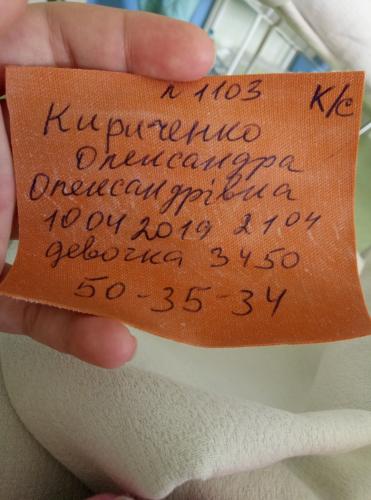 п 1103 К/с
Кириченко
Олександра
Олександрівна
10 04 2019 21 04
девочка 3450
50-35-34